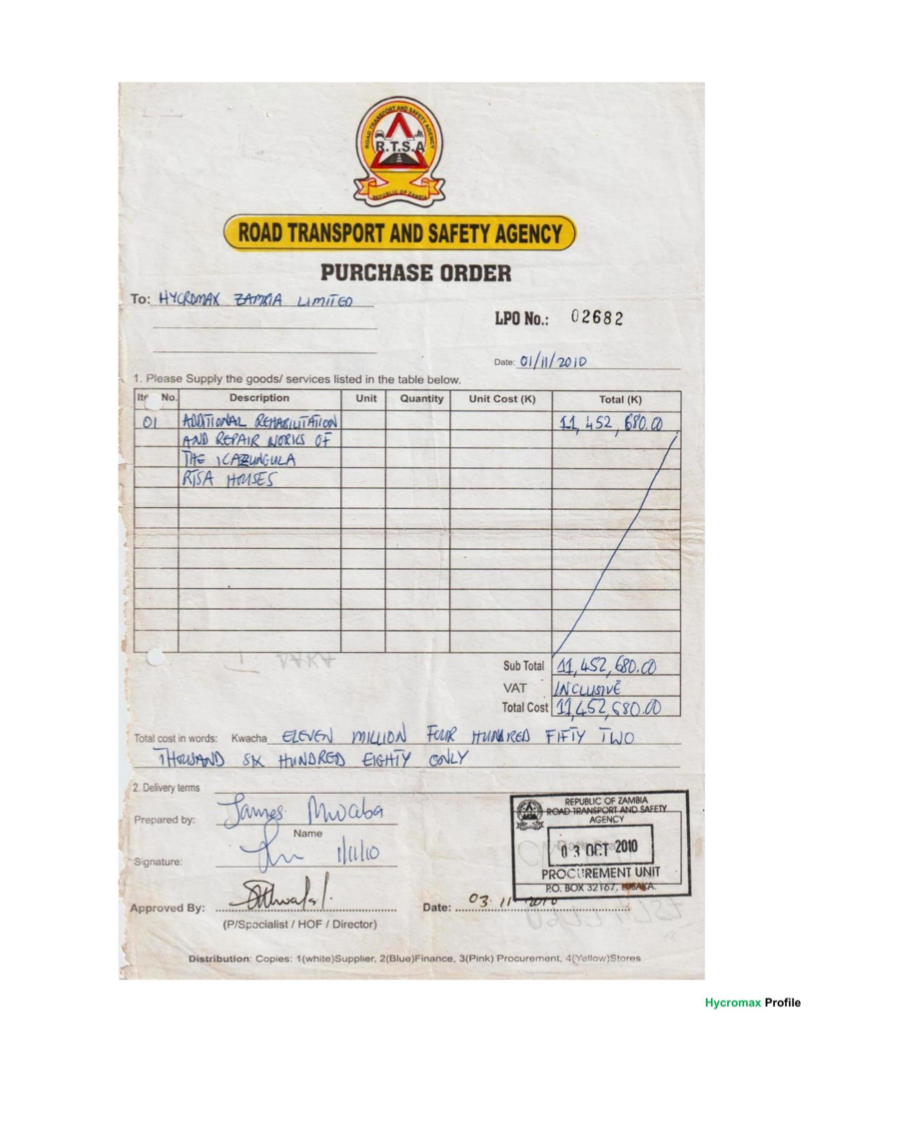 ROAD TRANSPORT AND SAFETY AGENCY
R.T.S.A
REPUBLIC OF ZAMBIA
ROAD TRANSPORT AND SAFETY AGENCY
PURCHASE ORDER
To: HYCROMAX ZAMBIA LIMITED
LPO No.: 02682
Date: 01/11/2010
1. Please Supply the goods/ services listed in the table below.
No. Description Unit Quantity Unit Cost (K) Total (K)
01 ADDITIONAL REHABILITATION 11,452,680.00
AND REPAIR WORKS OF
THE KAZUNGULA
RTSA HOUSES
Sub Total 11,452,680.00
VAT INCLUSIVE
Total Cost 11,452,680.00
Total cost in words: Kwacha ELEVEN MILLION FOUR HUNDRED FIFTY TWO
THOUSAND SIX HUNDRED EIGHTY ONLY
2. Delivery terms
Prepared by: James Mwaba
Name
Signature: 1/11/10
REPUBLIC OF ZAMBIA
ROAD TRANSPORT AND SAFETY
AGENCY
03 OCT 2010
PROCUREMENT UNIT
P.O. BOX 32167, LUSAKA.
Approved By: Date: 03 11 2010
(P/Specialist / HOF / Director)
Distribution: Copies: 1(white)Supplier, 2(Blue)Finance, 3(Pink) Procurement, 4(Yellow)Stores
Hycromax Profile